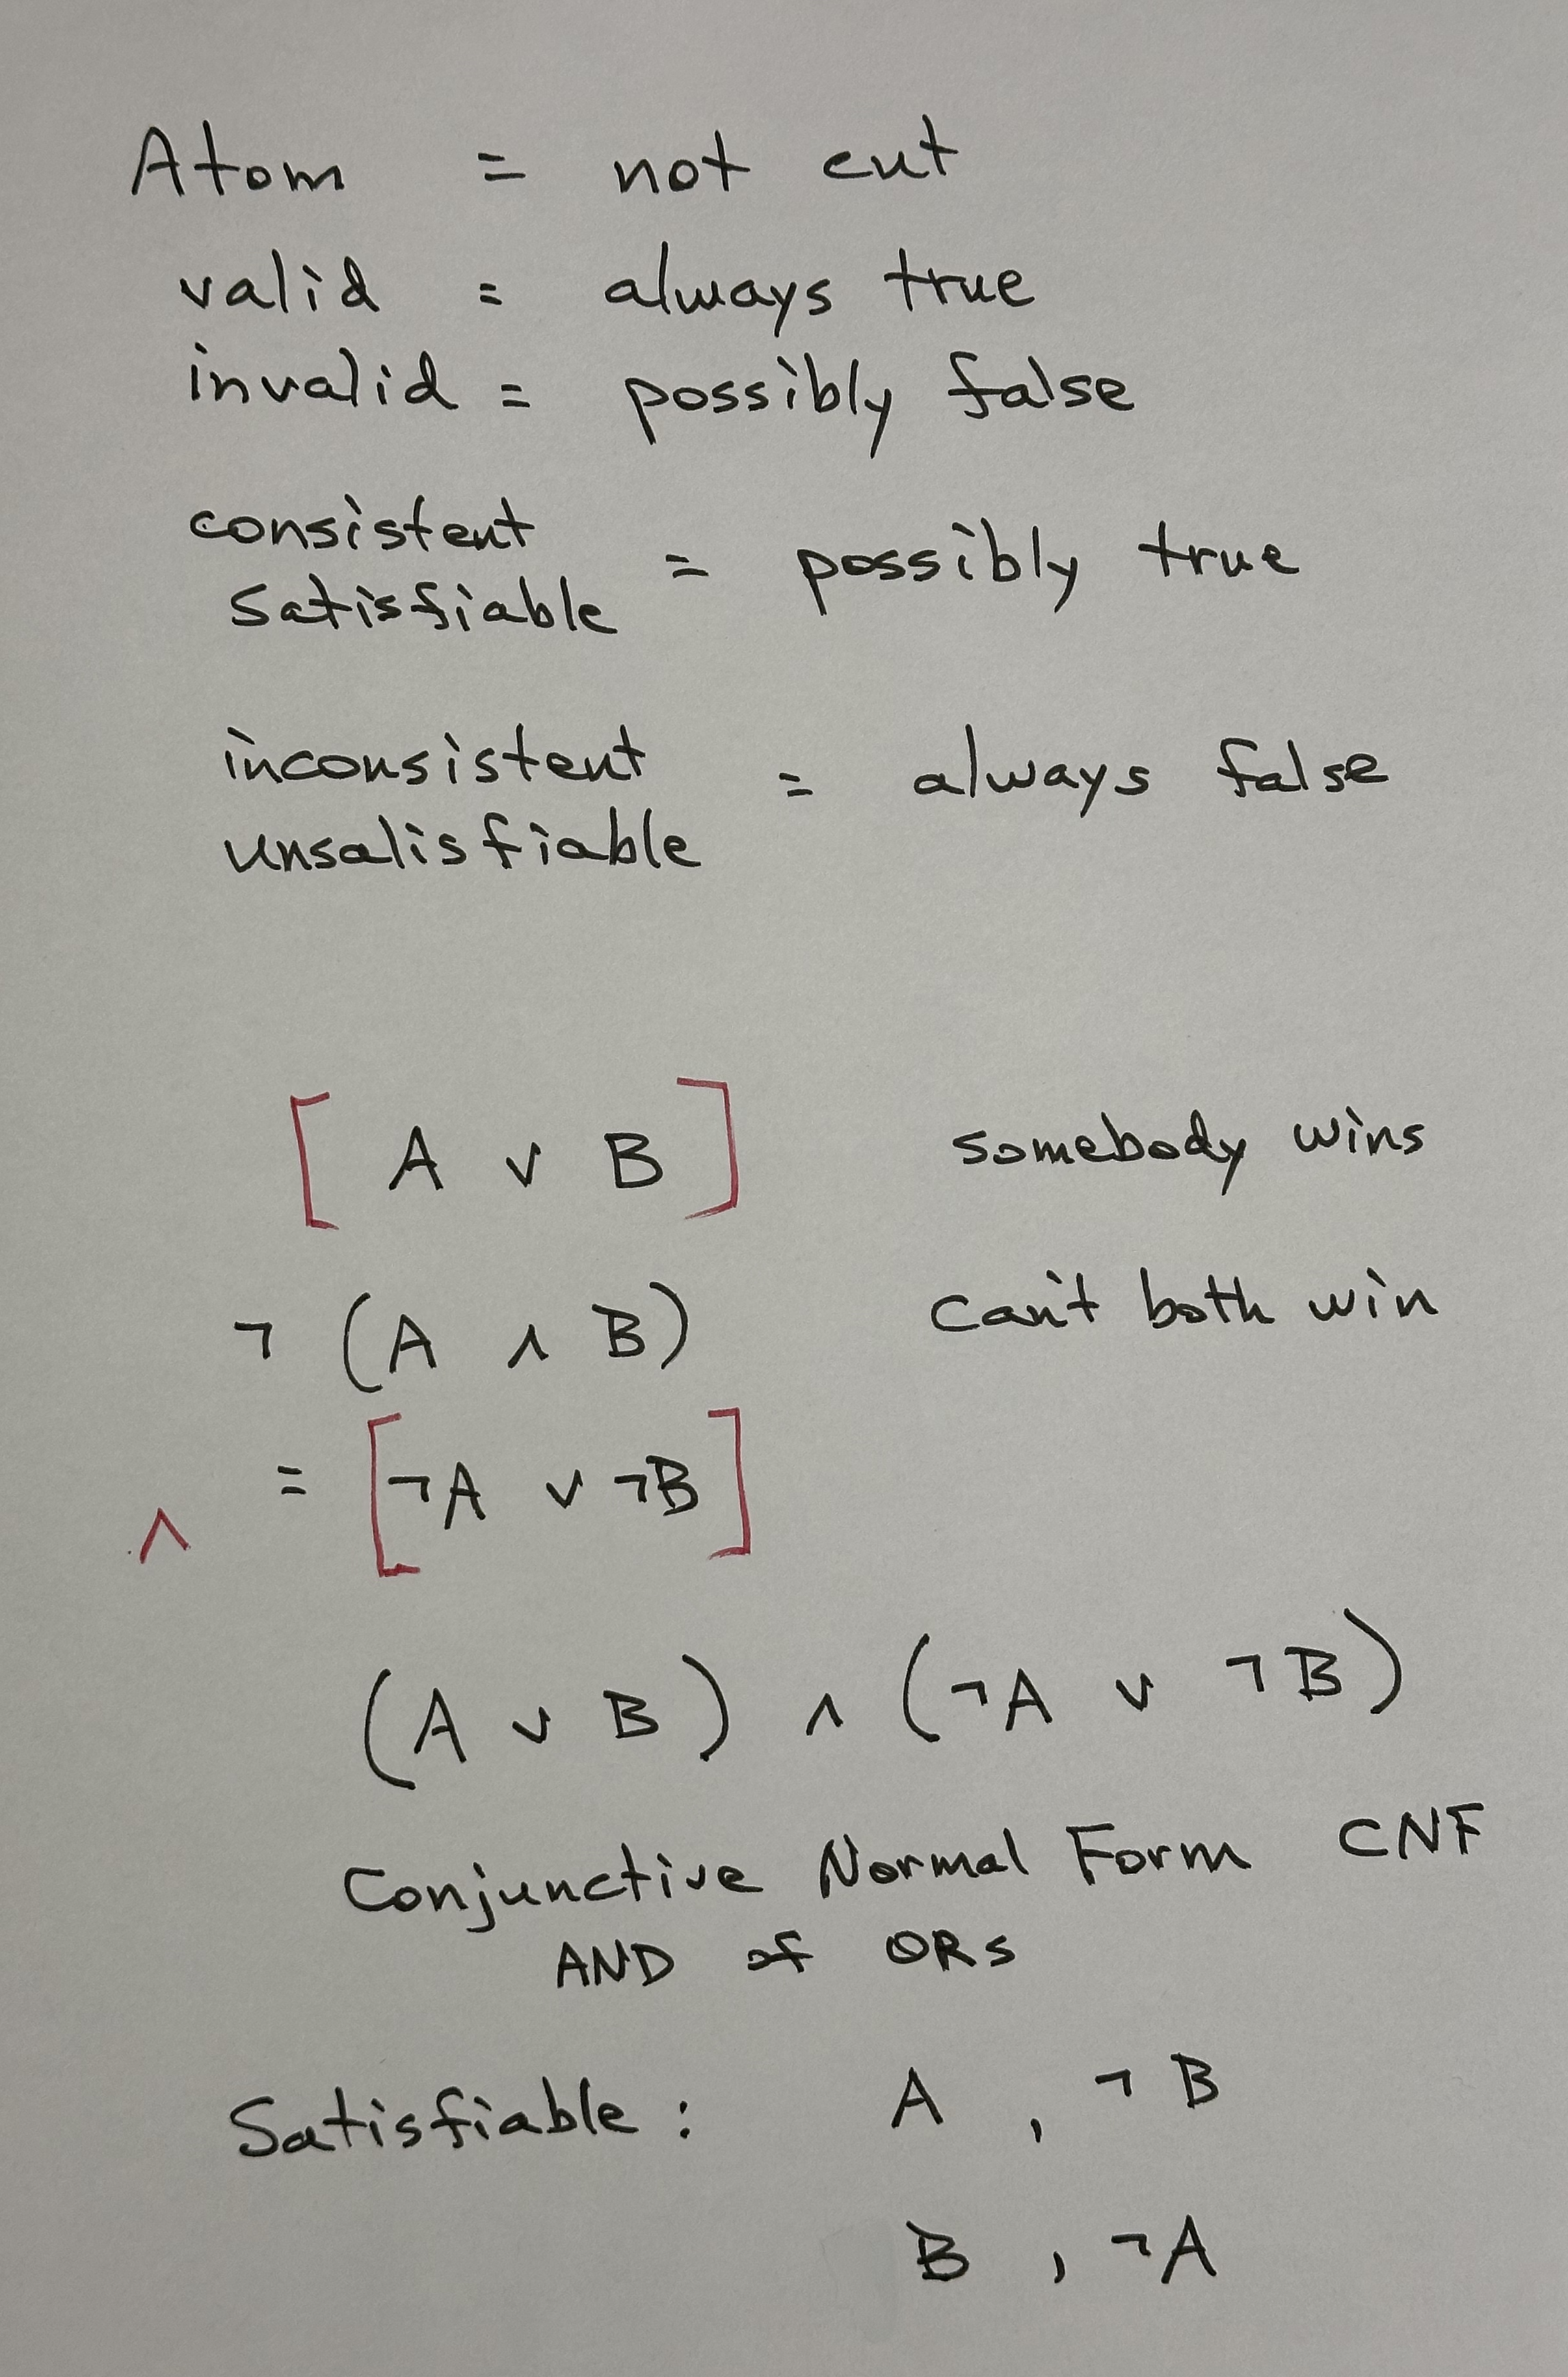 Atom = not cut
valid = always true
invalid = possibly false
consistent
satisfiable = possibly true
inconsistent
unsalisfiable = always false
[ A ∨ B ] somebody wins
¬ (A ∧ B) can't both win
∧ = [¬A ∨ ¬B]
(A ∨ B) ∧ (¬A ∨ ¬B)
Conjunctive Normal Form CNF
AND of ORs
Satisfiable : A , ¬B
B , ¬A